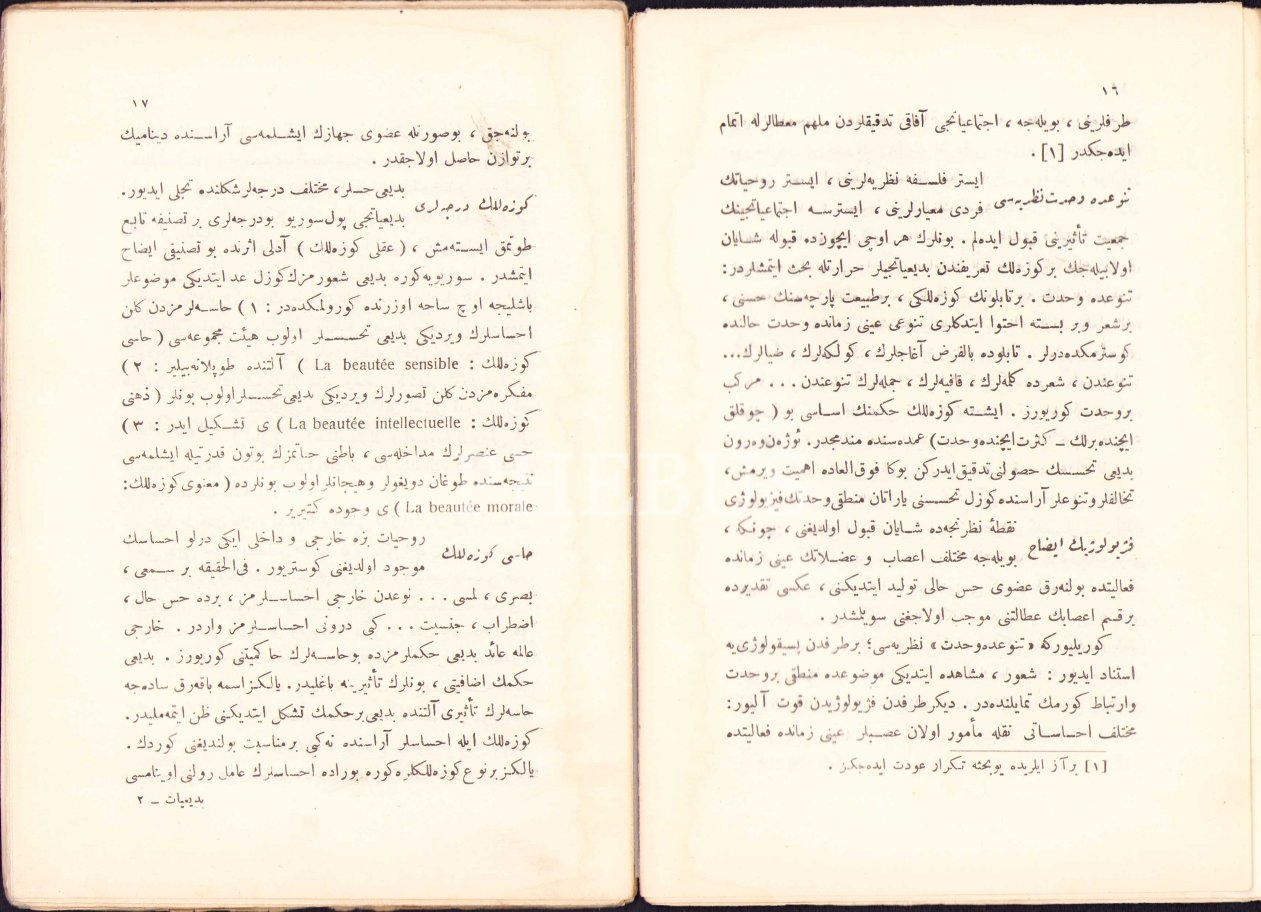 ١٦
طرفلرینی ، بویله‌جه ، اجتماعیاتجی آفاقی تدقیقلردن ملهم معطالرله اتمام
ایده‌جکدر [١] .
ایستر فلسفه نظریه‌لرینی ، ایستر روحیاتك
تنوعده وحدت نظریه‌سی
فردی معیارلرینی ، ایسترسه اجتماعیاتجینك
جمعیت تأثیرینی قبول ایده‌لم . بونلرك هر اوچی ایچون‌ده قبوله شایان
اولابیله‌جك بر کوزه‌لك تعریفندن بدیعیاتجیلر حرارتله بحث ایتمشلردر :
تنوعده وحدت . بر تابلونك کوزه‌للکی ، بر طبیعت پارچه‌سنك حسنی ،
بر شعر و بر بسته احتوا ایتدکلری تنوعی عینی زمانده وحدت حالنده
کوسترمکده‌درلر . تابلوده بالفرض آغاجلرك ، کولکه‌لرك ، ضیالرك...
تنوعندن ، شعرده کلمه‌لرك ، قافیه‌لرك ، جمله‌لرك تنوعندن ... مرکب
بر وحدت کورییورز . ایشته کوزه‌للك حکمنك اساسی بو ( چوقلق
ایچنده برلك ــ کثرت ایچنده وحدت ) عمده‌سنده مندمجدر . ئوژه‌ن وه‌رون
بدیعی تحسسك حصولنی تدقیق ایدرکن بوکا فوق‌العاده اهمیت ویرمش ،
تخالفلر و تنوعلر آراسنده کوزل تحسسنی یاراتان منطقی وحدتك فیزیولوژی
نقطۀ نظرنجه‌ده شایان قبول اولدیغنی ، چونکه ،
فزیولوژیك ایضاح
بویله‌جه مختلف اعصاب و عضلاتك عینی زمانده
فعالیتده بولنه‌رق عضوی حس حالی تولید ایتدیکنی ، عکسی تقدیرده
بر قسم اعصابك عطالتنی موجب اولاجغنی سویلمشدر .
کوریلیورکه «تنوعده وحدت» نظریه‌سی ؛ بر طرفدن پسیقولوژی‌یه
استناد ایدیور : شعور ، مشاهده ایتدیکی موضوعده منطقی بر وحدت
و ارتباط کورمك تمایلنده‌در . دیکر طرفدن فزیولوژیدن قوت آلیور :
مختلف احساساتی نقله مأمور اولان عصبلر عینی زمانده فعالیتده
[١] بر آز ایلریده بو بحثه تکرار عودت ایده‌جکز .
١٧
بولنه‌جق ، بو صورتله عضوی جهازك ایشلمه‌سی آراسنده دینامیك
بر توازن حاصل اولاجقدر .
بدیعی حسلر ، مختلف درجه‌لر شکلنده تجلی ایدیور .
کوزه‌للك درجه‌لری
بدیعیاتجی پول سوریو بو درجه‌لری بر تصنیفه تابع
طوتمق ایسته‌مش ، ( عقلی کوزه‌للك ) آدلی اثرنده بو تصنیفی ایضاح
ایتمشدر . سوریویه کوره بدیعی شعورمزك کوزل عد ایتدیکی موضوعلر
باشلیجه اوچ ساحه اوزرنده کورولمکده‌در : ١ ) حاسه‌لرمزدن کلن
احساسلرك ویردیکی بدیعی تحسسلر اولوب هیئت مجموعه‌سی ( حاسی
کوزه‌للك : La beautée sensible ) آلتنده طوپلانه‌بیلیر : ٢ )
مفکره‌مزدن کلن تصورلرك ویردیکی بدیعی تحسسلر اولوب بونلر ( ذهنی
کوزه‌للك : La beautée intellectuelle ) ی تشکیل ایدر : ٣ )
حسی عنصرلرك مداخله‌سی ، باطنی حیاتمزك بوتون قدرتیله ایشلمه‌سی
نتیجه‌سنده طوغان دویغولر و هیجانلر اولوب بونلرده ( معنوی کوزه‌للك :
La beautée morale ) ی وجوده کتیریر .
روحیات بزه خارجی و داخلی ایکی درلو احساسك
حاسی کوزه‌للك
موجود اولدیغنی کوستریور . فی‌الحقیقه بر سمعی ،
بصری ، لمسی ... نوعدن خارجی احساسلرمز ، برده حس حال ،
اضطراب ، جنسیت ... کبی درونی احساسلرمز واردر . خارجی
عالمه عائد بدیعی حکملرمزده بو حاسه‌لرك حاکمیتنی کورییورز . بدیعی
حکمك اضافیتی ، بونلرك تأثیرینه باغلیدر . یالکز اسمه باقه‌رق ساده‌جه
حاسه‌لرك تأثیری آلتنده بدیعی بر حکمك تشکل ایتدیکنی ظن ایتمه‌ملیدر .
کوزه‌للك ایله احساسلر آراسنده نه‌کبی بر مناسبت بولندیغنی کوردك .
یالکز بر نوع کوزه‌للکلره کوره بوراده احساسلرك عامل رولنی اوینامسی
بدیعیات ــ ٢